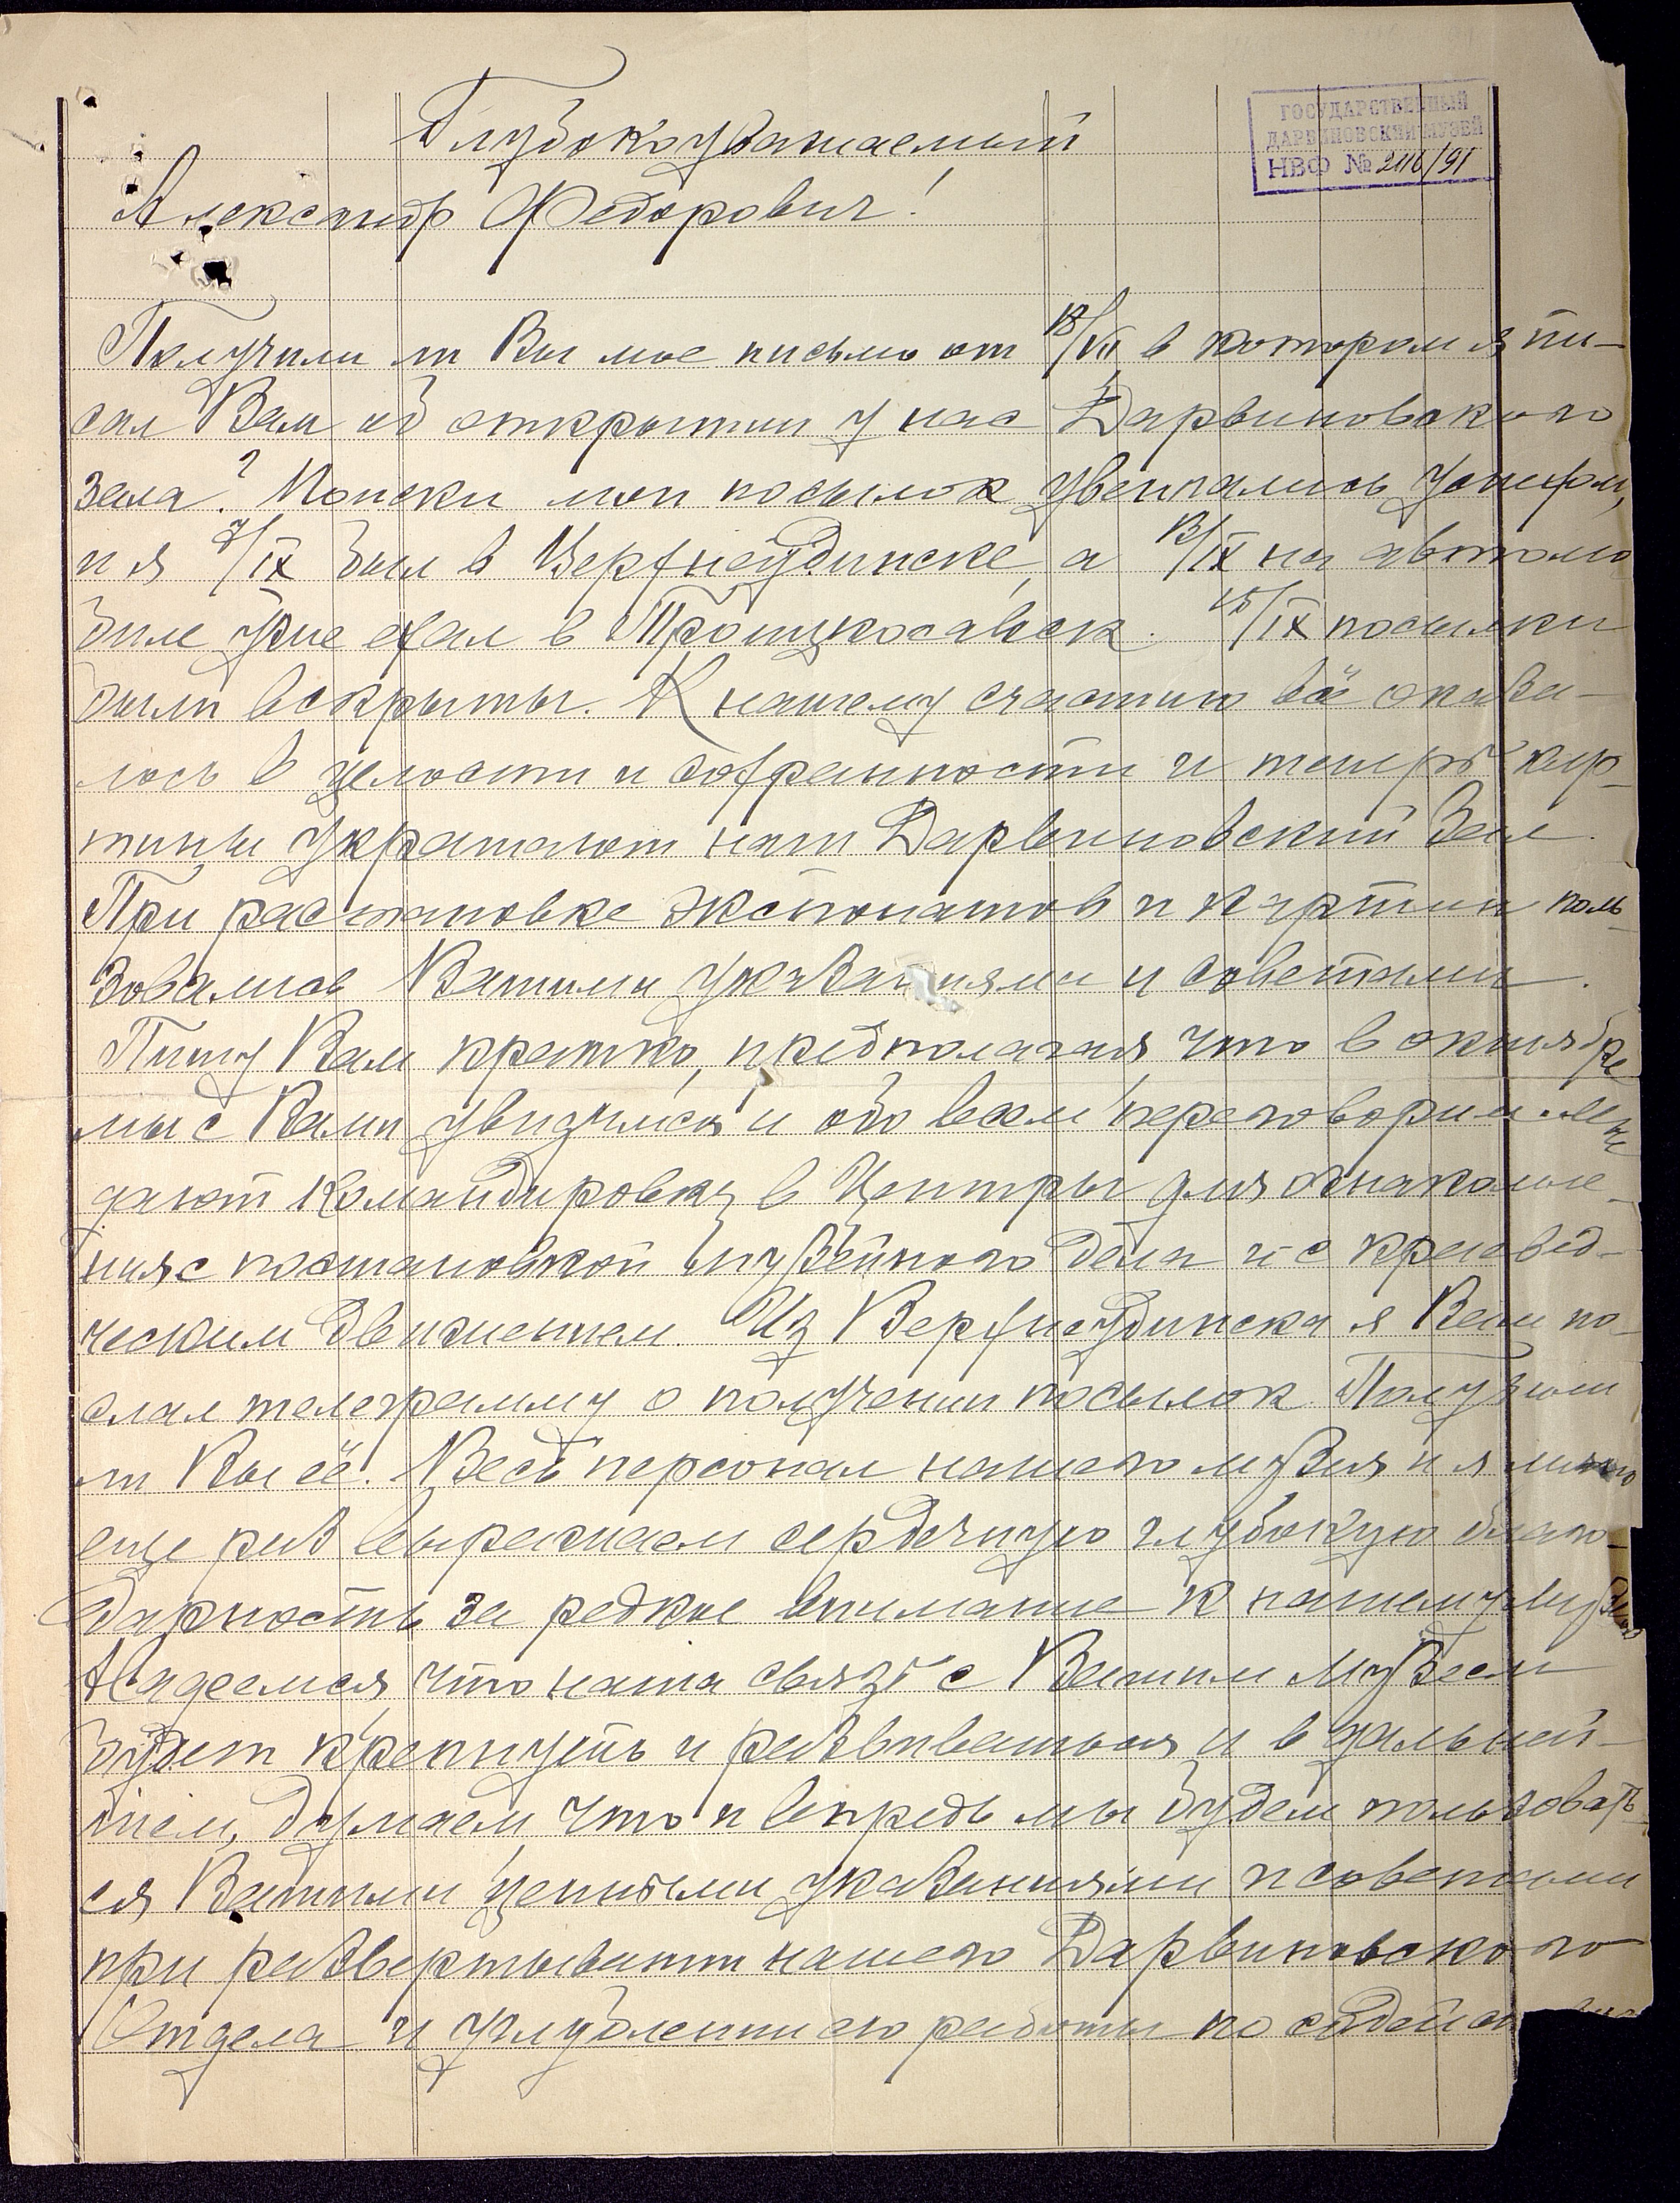 ГОСУДАРСТВЕННЫЙ
ДАРВИНОВСКИЙ МУЗЕЙ
НВФ № 2116/91
Глубокоуважаемый
Александр Федорович!
Получили ли Вы мое письмо от 18/VII в котором я пи-
сал Вам об открытии у нас Дарвиновского
зала? Поиски мои посылок увенчались успехом,
и я 7/IX был в Верхнеудинске, а 13/IX на автомо
биле уже ехал в Троицкосавск. 15/IX посылки
были вскрыты. К нашему счастию всё оказа-
лось в целости и сохранности и теперь кар-
тины украшают наш Дарвиновский Зал.
При расстановке экспонатов и картин поль-
зовались Вашими указаниями и советами.
Пишу Вам кратко, предполагая, что в октябре
мы с Вами увидимся и обо всем переговорим. Мне
дают командировку в Центры для ознакомле-
ния с постановкой музейного дела и с краевед-
ческим движением. Из Верхнеудинска я Вам по-
слал телеграмму о получении посылок. Получили
ли Вы её. Весь персонал нашего музея и я лично
еще раз выражаем сердечную глубокую благо-
дарность за редкое внимание к нашему музею
Надеемся что наша связь с Вашим Музеем
будет крепнуть и развиваться и в дальней-
шем, думаем что и впредь мы будем пользовать-
ся Вашими ценными указаниями и советами
при развертывании нашего Дарвиновского
Отдела и углублении его работы по